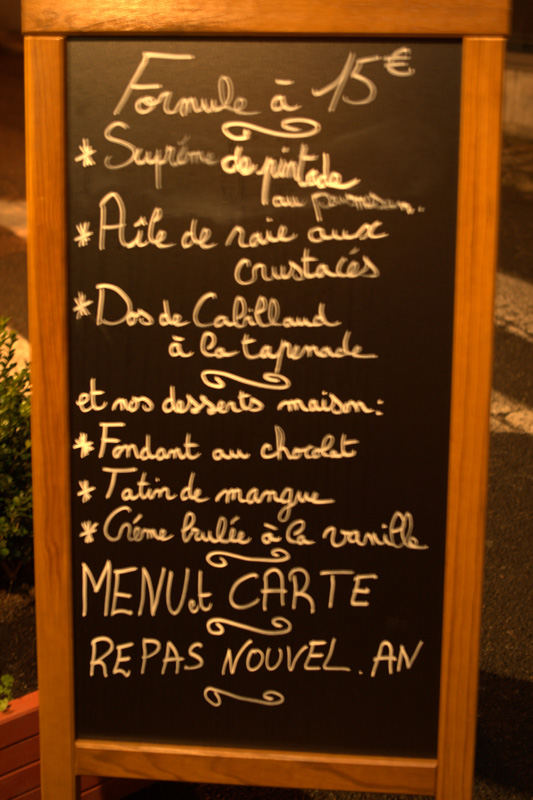 Formule à 15€
* Suprême de pintade
au parmesan.
* Aîle de raie aux
crustacés
* Dos de Cabillaud
à la tapenade
et nos desserts maison:
* Fondant au chocolat
* Tatin de mangue
* Crème brulée à la vanille
MENU et CARTE
REPAS NOUVEL.AN